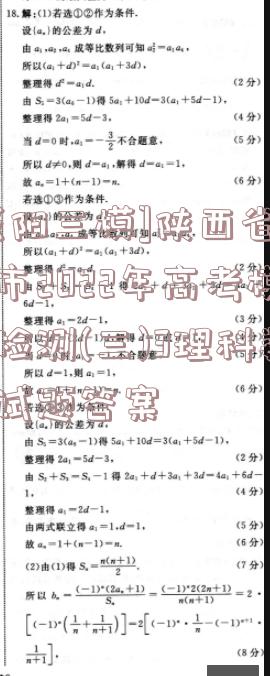 18.解:(1)若选①②作为条件.
设{aₙ}的公差为 d,
由 a₁,a₂,a₄ 成等比数列可知 a₂²=a₁a₄,
所以(a₁+d)²=a₁(a₁+3d),
整理得 d²=a₁d. (2分)
由 S₅=3(a₆-1)得 5a₁+10d=3(a₁+5d-1),
整理得 2a₁=5d-3, (4分)
当 d=0 时,a₁=-3/2 不合题意, (5分)
所以 d≠0,则 d=a₁,解得 d=a₁=1,
故 aₙ=1+(n-1)=n. (6分)
若选①③作为条件.
设{aₙ}的公差为
成等比数列可知
所以(a₁+d)²=a₁(a₁+3d),
整理得
6d-1,
整理得 a₁=2d-1, (3分)
不合题意
所以 d=1,则 a₁=1,
陕西省
市2022年高考模
检测(三)5理科数
试题答案
设{aₙ}的公差为 d,
由 S₅=3(a₆-1)得 5a₁+10d=3(a₁+5d-1),
整理得 2a₁=5d-3, (2分)
由 S₂+S₃=S₄-1 得 2a₁+d+3a₁+3d=4a₁+6d-
1, (4分)
整理得 a₁=2d-1,
由两式联立得 a₁=1,d=1, (5分)
故 aₙ=1+(n-1)=n. (6分)
(2)由(1)得 Sₙ=n(n+1)/2. (7分)
所以 bₙ=(-1)ⁿ(2aₙ+1)/Sₙ=(-1)ⁿ2(2n+1)/n(n+1)=2·
[(-1)ⁿ(1/n+1/(n+1))]=2[(-1)ⁿ·1/n-(-1)ⁿ⁺¹·
1/(n+1)]. (8分)